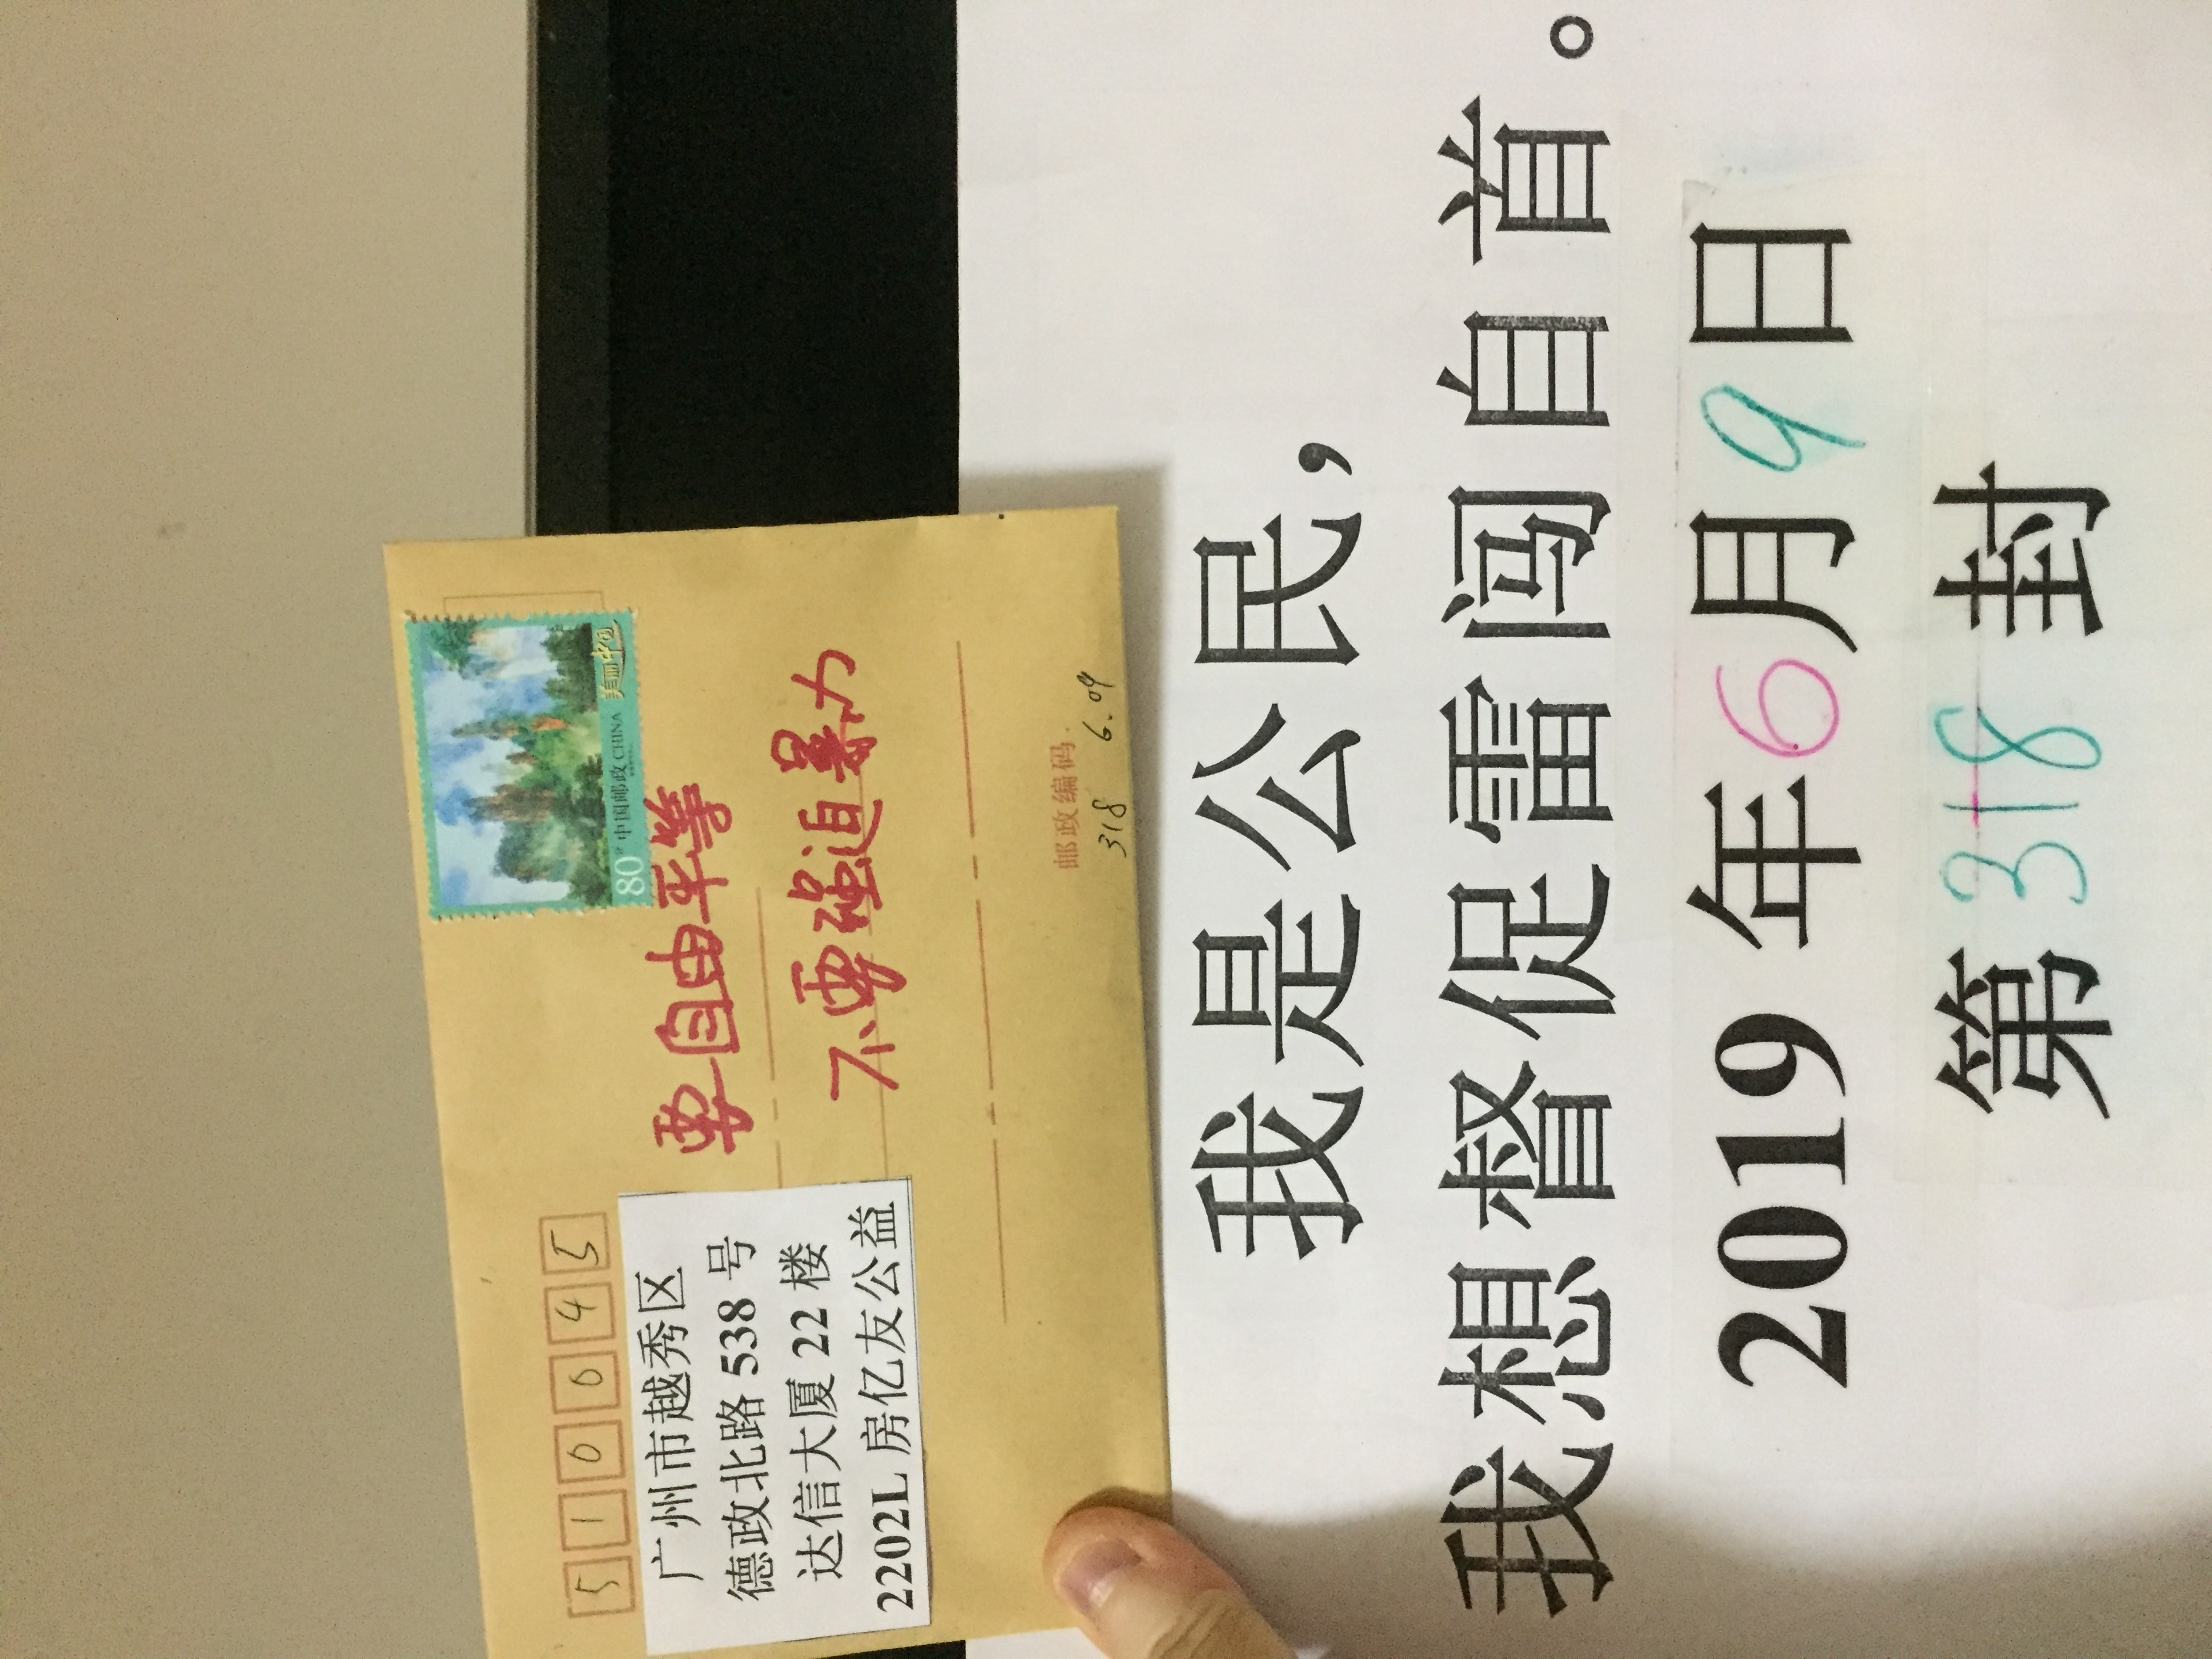 510045
80分 中国邮政 CHINA 美丽中国
广州市越秀区
德政北路 538 号
达信大厦 22 楼
2202L 房亿友公益
要自由平等
不要强迫暴力
邮政编码
318 6.09
我是公民，
我想督促雷闯自首。
2019 年 6 月 9 日
第 318 封